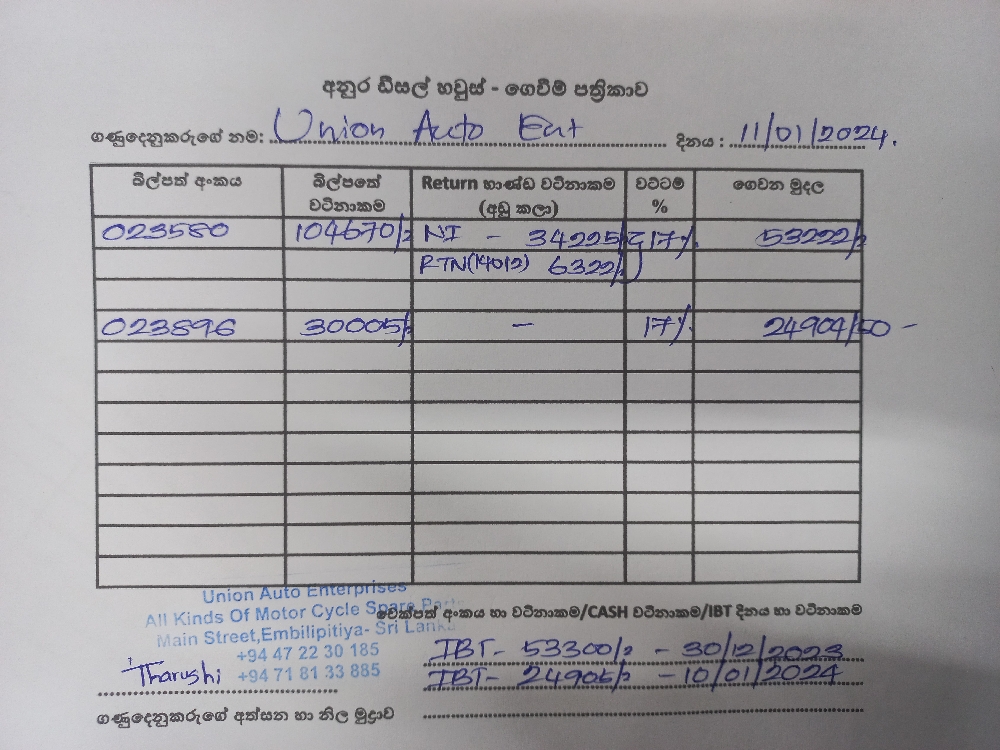 අනුර ඩීසල් හවුස් - ගෙවීම් පත්‍රිකාව
ගණුදෙනුකරුගේ නම: Union Auto Ent දිනය : 11/01/2024.
බිල්පත් අංකය බිල්පතේ වටිනාකම Return භාණ්ඩ වටිනාකම (අඩු කලා) වට්ටම් % ගෙවන මුදල
023580 104670/= NI - 34225/= 17% 53222/=
RTN(14012) 6322/=
023896 30005/= - 17% 24904/50 -
Union Auto Enterprises
All Kinds Of Motor Cycle Spare Parts
චෙක්පත් අංකය හා වටිනාකම/CASH වටිනාකම/IBT දිනය හා වටිනාකම
Main Street,Embilipitiya- Sri Lanka
+94 47 22 30 185
IBT - 53300/= - 30/12/2023
Tharushi +94 71 81 33 885
IBT - 24905/= - 10/01/2024
ගණුදෙනුකරුගේ අත්සන හා නිල මුද්‍රාව